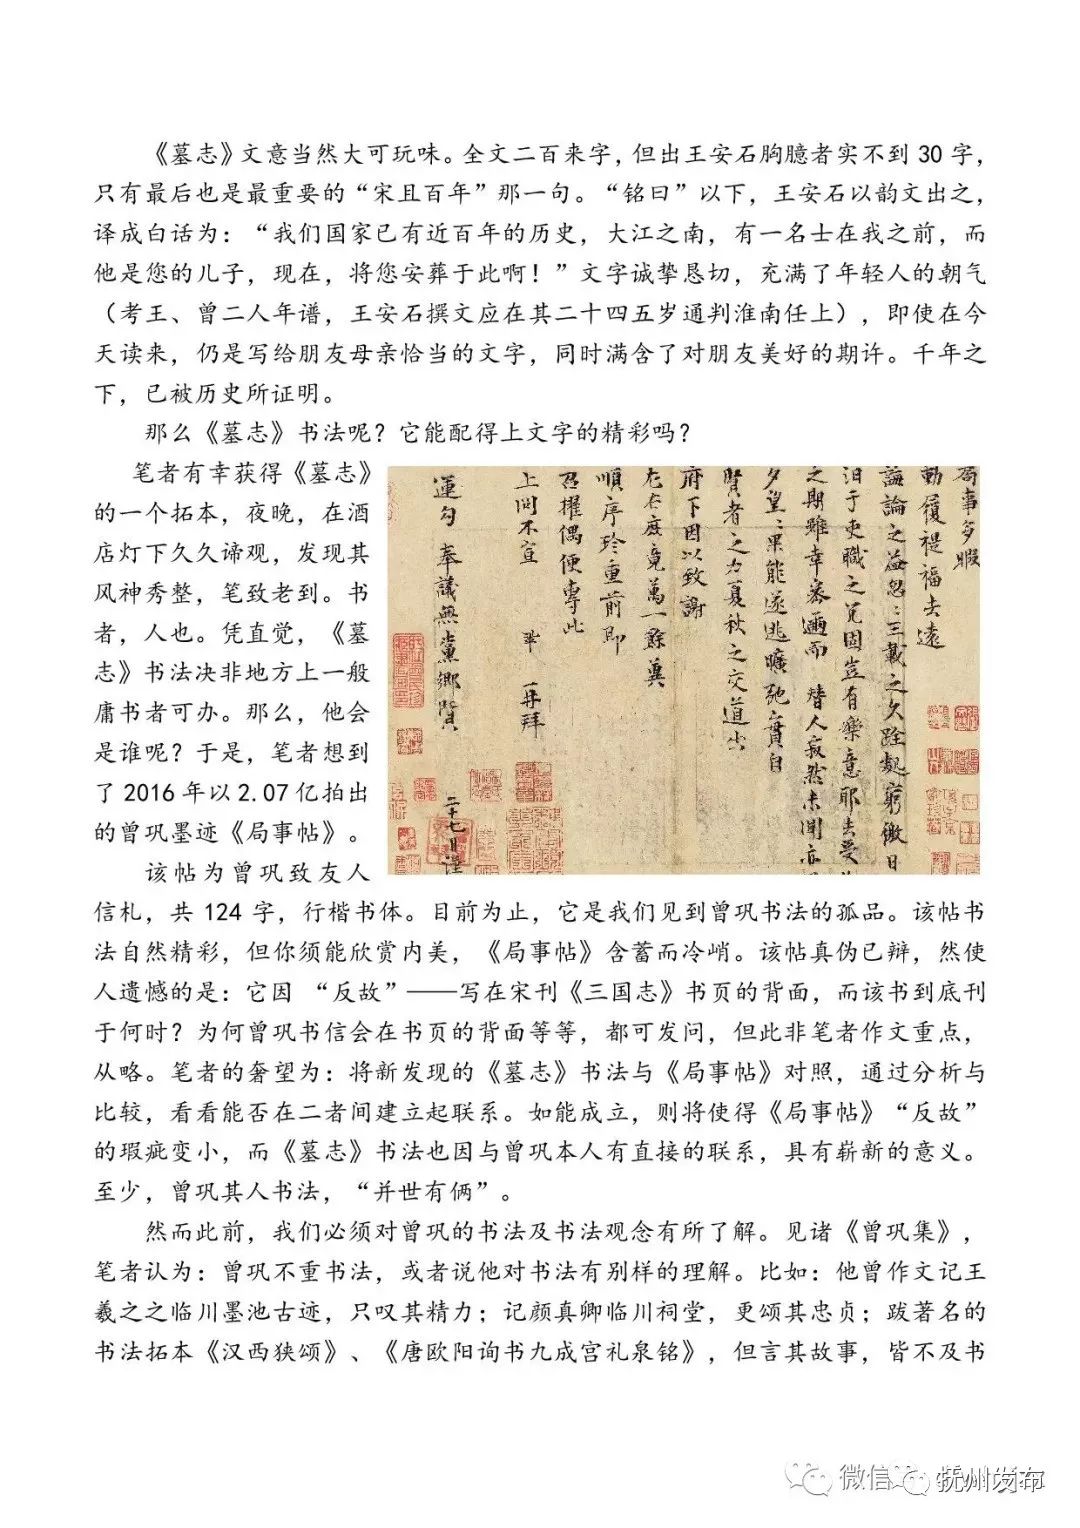 《墓志》文意当然大可玩味。全文二百来字，但出王安石胸臆者实不到 30 字，
只有最后也是最重要的“宋且百年”那一句。“铭曰”以下，王安石以韵文出之，
译成白话为：“我们国家已有近百年的历史，大江之南，有一名士在我之前，而
他是您的儿子，现在，将您安葬于此啊！”文字诚挚恳切，充满了年轻人的朝气
（考王、曾二人年谱，王安石撰文应在其二十四五岁通判淮南任上），即使在今
天读来，仍是写给朋友母亲恰当的文字，同时满含了对朋友美好的期许。千年之
下，已被历史所证明。
那么《墓志》书法呢？它能配得上文字的精彩吗？
笔者有幸获得《墓志》
的一个拓本，夜晚，在酒
店灯下久久谛观，发现其
风神秀整，笔致老到。书
者，人也。凭直觉，《墓
志》书法决非地方上一般
庸书者可办。那么，他会
是谁呢？于是，笔者想到
了 2016 年以 2.07 亿拍出
的曾巩墨迹《局事帖》。
局事多暇
動履禔福去遠
誨論之益忽〻三載之久跧處窮徼日
汨于吏職之冗固豈有樂意耶去受
之期雖幸密邇而 替人寂然未聞亦
夕望〻果能遂逃曠弛實自
賢者之力夏秋之交道出
府下因以致謝
左右庶竟萬一餘冀
順序珍重前即
召擢偶便專此
上問不宣 鞏 再拜
運勾奉議無黨鄉賢 二十七日謹
该帖为曾巩致友人
信札，共 124 字，行楷书体。目前为止，它是我们见到曾巩书法的孤品。该帖书
法自然精彩，但你须能欣赏内美，《局事帖》含蓄而冷峭。该帖真伪已辩，然使
人遗憾的是：它因 “反故”——写在宋刊《三国志》书页的背面，而该书到底刊
于何时？为何曾巩书信会在书页的背面等等，都可发问，但此非笔者作文重点，
从略。笔者的奢望为：将新发现的《墓志》书法与《局事帖》对照，通过分析与
比较，看看能否在二者间建立起联系。如能成立，则将使得《局事帖》“反故”
的瑕疵变小，而《墓志》书法也因与曾巩本人有直接的联系，具有崭新的意义。
至少，曾巩其人书法，“并世有俩”。
然而此前，我们必须对曾巩的书法及书法观念有所了解。见诸《曾巩集》，
笔者认为：曾巩不重书法，或者说他对书法有别样的理解。比如：他曾作文记王
羲之之临川墨池古迹，只叹其精力；记颜真卿临川祠堂，更颂其忠贞；跋著名的
书法拓本《汉西狭颂》、《唐欧阳询书九成宫礼泉铭》，但言其故事，皆不及书
微信 抚州发布